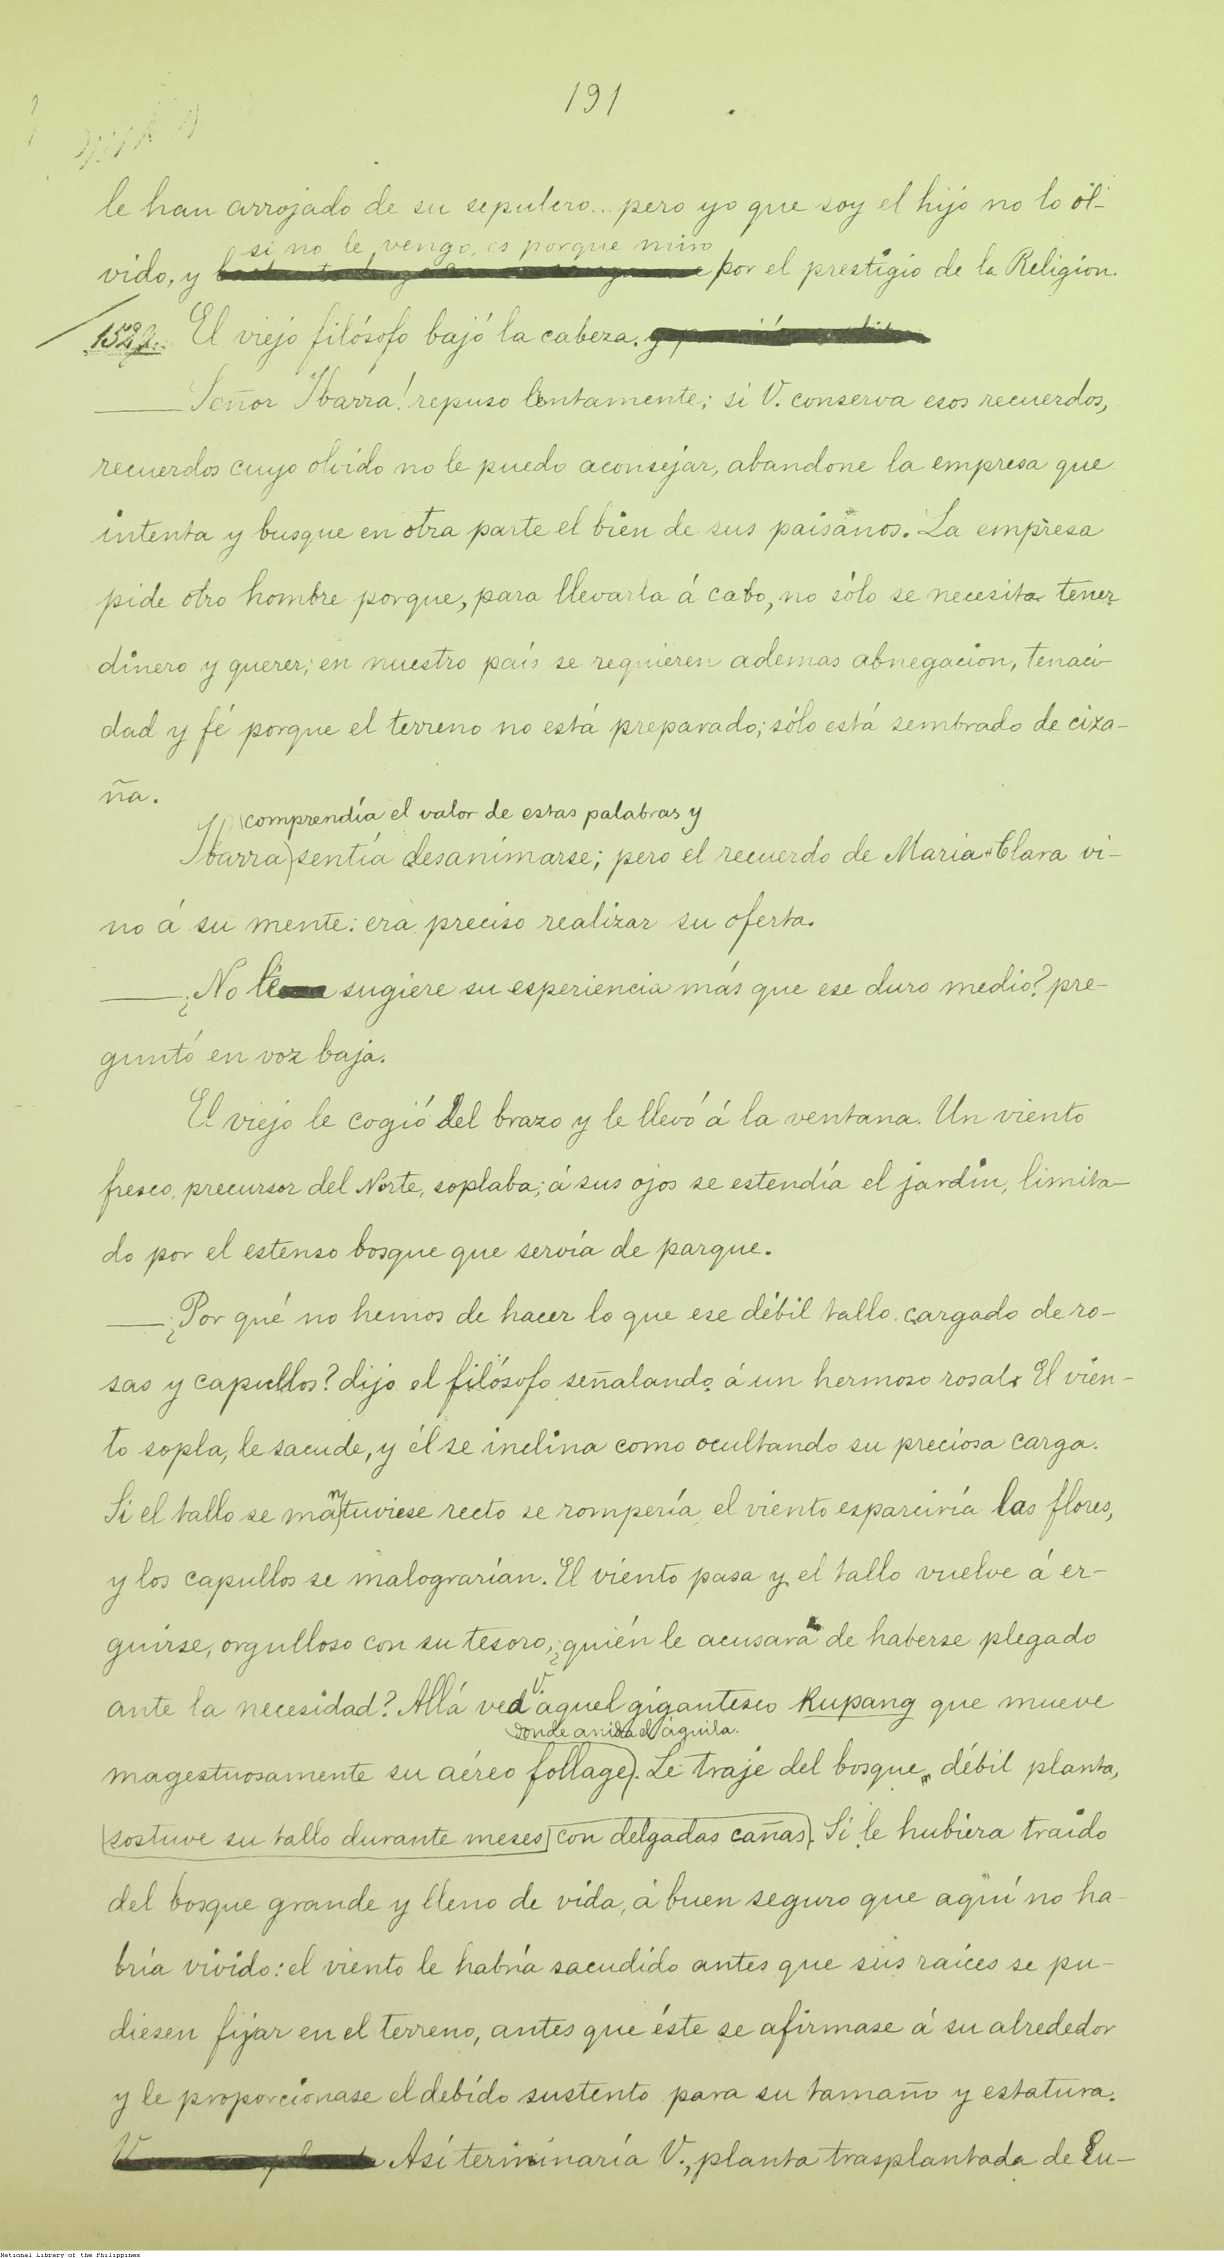 191
le han arrojado de su sepulcro... pero yo que soy el hijo no lo ol-
si no le vengo, es porque miro
vido, y por el prestigio de la Religion.
152 El viejo filósofo bajó la cabeza.
—Señor Ibarra! repuso lentamente; si V. conserva esos recuerdos,
recuerdos cuyo olvido no le puedo aconsejar, abandone la empresa que
intenta y busque en otra parte el bien de sus paisanos. La empresa
pide otro hombre porque, para llevarla á cabo, no sólo se necesita tener
dinero y querer; en nuestro país se requieren ademas abnegacion, tenaci-
dad y fé porque el terreno no está preparado; sólo está sembrado de ciza-
ña.
comprendía el valor de estas palabras y
Ibarra sentía desanimarse; pero el recuerdo de Maria Clara vi-
no á su mente: era preciso realizar su oferta.
—¿No le sugiere su esperiencia más que ese duro medio? pre-
guntó en voz baja.
El viejo le cogió del brazo y le llevó á la ventana. Un viento
fresco, precursor del Norte, soplaba; á sus ojos se estendía el jardin, limita-
do por el estenso bosque que servía de parque.
—¿Por qué no hemos de hacer lo que ese débil tallo cargado de ro-
sas y capullos? dijo el filósofo señalando á un hermoso rosal. El vien-
to sopla, le sacude, y él se inclina como ocultando su preciosa carga.
Si el tallo se mantuviese recto se rompería, el viento esparciría las flores,
y los capullos se malograrían. El viento pasa y el tallo vuelve á er-
guirse, orgulloso con su tesoro, ¿quién le acusará de haberse plegado
ante la necesidad? Allá ved V. aquel gigantesco Kupang que mueve
donde anida el águila.
magestuosamente su aéreo follage. Le traje del bosque, débil planta,
sostuve su tallo durante meses con delgadas cañas. Si le hubiera traido
del bosque grande y lleno de vida, á buen seguro que aquí no ha-
bría vivido: el viento le habría sacudido antes que sus raices se pu-
diesen fijar en el terreno, antes que éste se afirmase á su alrededor
y le proporcionase el debido sustento para su tamaño y estatura.
Así terminaría V., planta trasplantada de Eu-
National Library of the Philippines